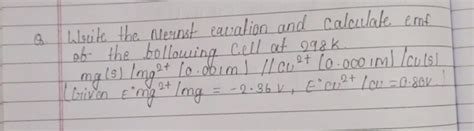 Q. Write the Nernst eavation and calculate emf
ob the bollowing Cell at 298k.
mg(s) /mg²⁺ (0.001m) //Cu²⁺ (0.0001m) /cu(s)
(Given E°mg²⁺/mg = -2.36 v, E°cu²⁺/cu = 0.80v.)